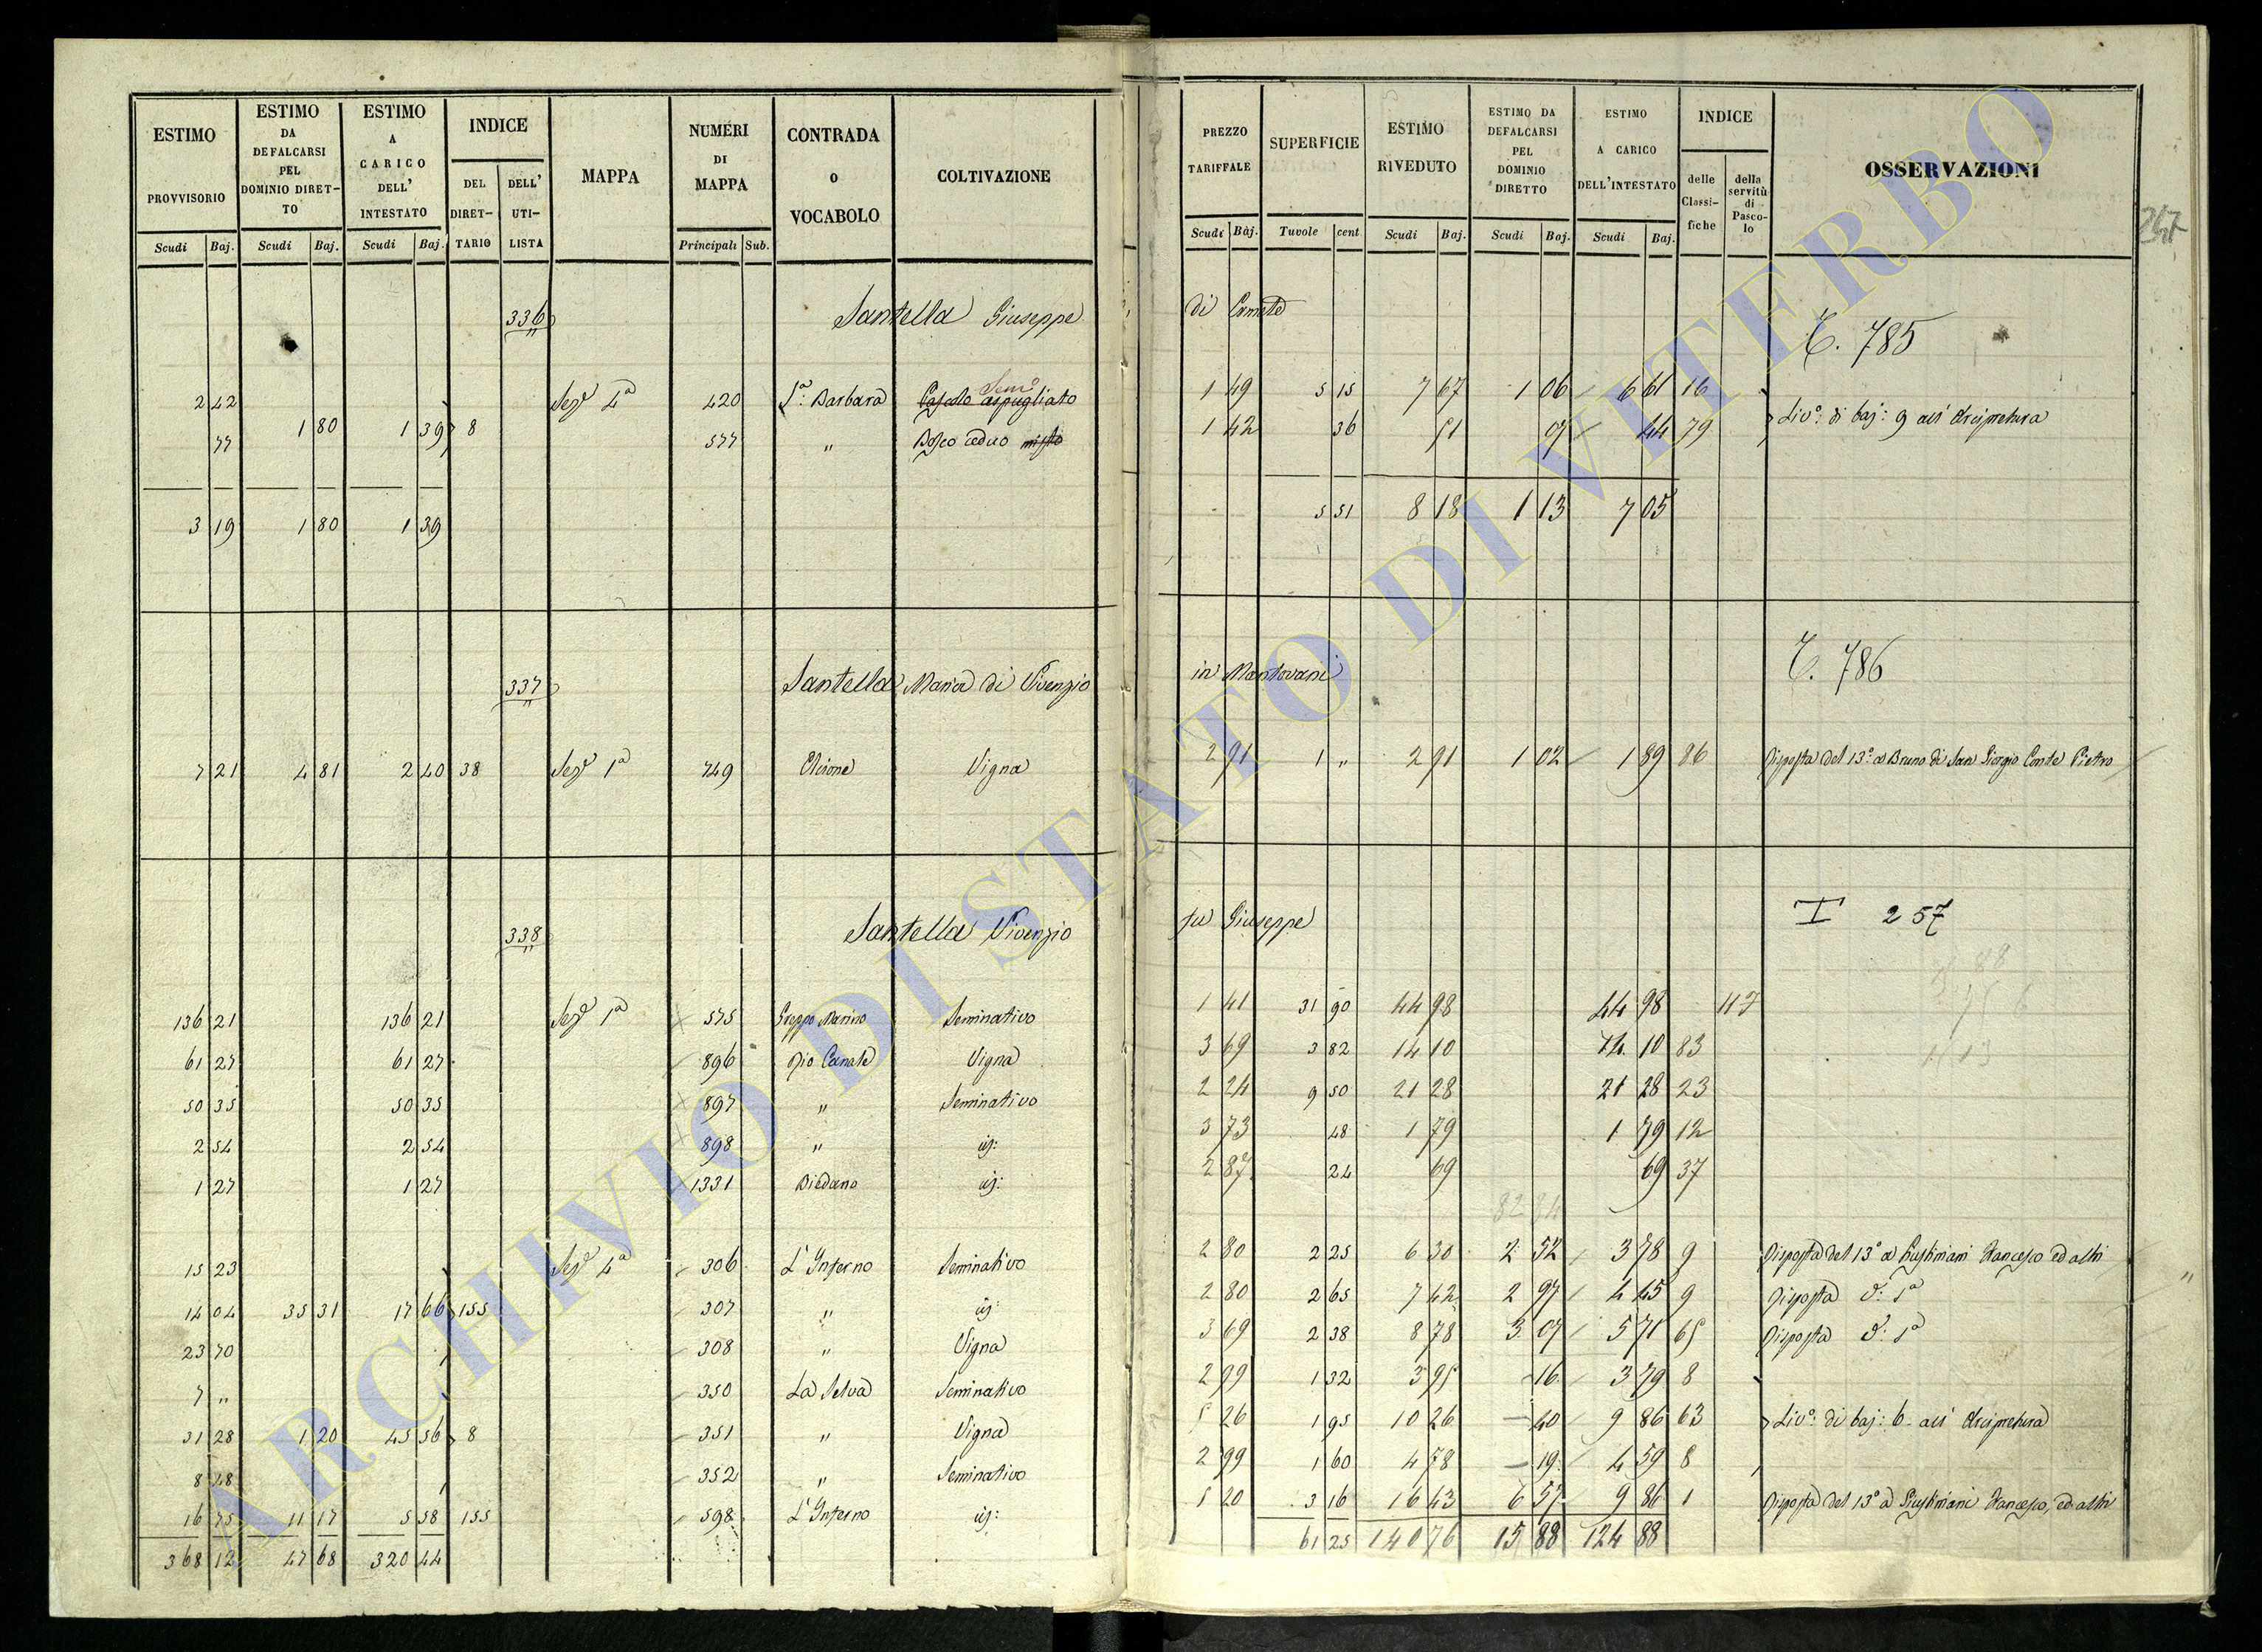 ESTIMO PROVVISORIO Scudi Baj.
ESTIMO DA DEFALCARSI PEL DOMINIO DIRETTO Scudi Baj.
ESTIMO A CARICO DELL' INTESTATO Scudi Baj.
INDICE DEL DIRETTARIO DELL' UTILISTA
MAPPA
NUMERI DI MAPPA Principali Sub.
CONTRADA O VOCABOLO
COLTIVAZIONE
PREZZO TARIFFALE Scudi Baj.
SUPERFICIE Tuvole cent
ESTIMO RIVEDUTO Scudi Baj.
ESTIMO DA DEFALCARSI PEL DOMINIO DIRETTO Scudi Baj.
ESTIMO A CARICO DELL'INTESTATO Scudi Baj.
INDICE delle Classifiche della servitù di Pascolo
OSSERVAZIONI
247
336 Santella Giuseppe di Ermete T. 785
2 42 Sezе 4a 420 Sa: Barbara Pascolo Semo cespugliato 1 49 5 15 7 67 1 06 6 61 16
77 1 80 1 39 8 577 " Bosco ceduo misto 1 42 36 51 07 44 79 Livo: di baj: 9 all' Arcipretura
3 19 1 80 1 39 5 51 8 18 1 13 7 05
337 Santella Maria di Vivenzio in Mantovani T. 786
7 21 4 81 2 40 38 Seze 1a 749 Vigna 2 91 1 " 2 91 1 02 1 89 86 Risposta del 13o a Bruno di San Giorgio Conte Pietro
338 Santella Vivenzio fu Giuseppe T 257
136 21 136 21 Seze 1a 575 Greppo Marino Seminativo 1 41 31 90 44 98 44 98 117
61 27 61 27 896 Rio Canale Vigna 3 69 3 82 14 10 14 10 83
50 35 50 35 897 " Seminativo 2 24 9 50 21 28 21 28 23
2 54 2 54 898 " id: 3 73 48 1 79 1 79 12
1 27 1 27 1331 Biedano id: 2 87 24 69 69 37
82 84
15 23 Seze 4a 306 L'Inferno Seminativo 2 80 2 25 6 30 2 52 3 78 9 Risposta del 13o a Giustiniani Francesco ed altri
14 04 35 31 17 66 155 307 " id: 2 80 2 65 7 42 2 97 4 45 9 Risposta d: 1a
23 70 308 " Vigna 3 69 2 38 8 78 3 07 5 71 65 Risposta d: 1a
7 " 350 La Selva Seminativo 2 99 1 32 3 95 16 3 79 8
31 28 1 20 45 56 8 351 " Vigna 5 26 1 95 10 26 40 9 86 63 Livo: di baj: 6 all' Arcipretura
8 48 352 " Seminativo 2 99 1 60 4 78 19 4 59 8
16 75 11 17 5 58 155 598 L'Inferno id: 5 20 3 16 16 43 6 57 9 86 1 Risposta del 13o a Giustiniani Francesco, ed altri
368 12 47 68 320 44 61 25 140 76 15 88 124 88
ARCHIVIO DI STATO DI VITERBO